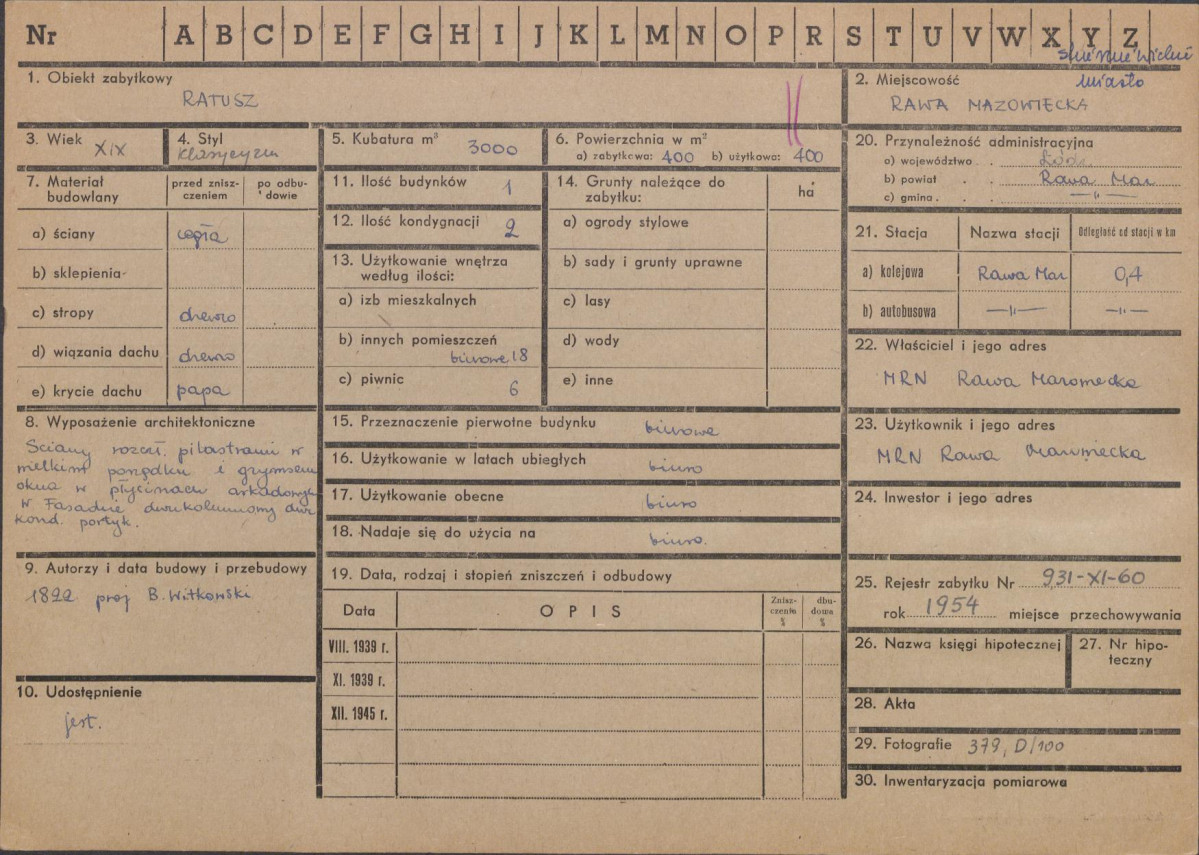 Nr A B C D E F G H I J K L M N O P R S T U V W X Y Z
miasto
1. Obiekt zabytkowy
RATUSZ
2. Miejscowość
RAWA MAZOWIECKA
3. Wiek XIX
4. Styl
klasycyzm
5. Kubatura m³ 3000
6. Powierzchnia w m²
a) zabytkowa: 400 b) użytkowa: 400
20. Przynależność administracyjna
a) województwo . . Łódź
b) powiat . . Rawa Maz
c) gmina . . —"—
7. Materiał budowlany
przed znisz-
czeniem
po odbu-
dowie
a) ściany cegła
b) sklepienia
c) stropy drewno
d) wiązania dachu drewno
e) krycie dachu papa
11. Ilość budynków 1
12. Ilość kondygnacji 2
13. Użytkowanie wnętrza
według ilości:
a) izb mieszkalnych
b) innych pomieszczeń
biurowe 18
c) piwnic 6
14. Grunty należące do
zabytku:
ha
a) ogrody stylowe
b) sady i grunty uprawne
c) lasy
d) wody
e) inne
21. Stacja
Nazwa stacji
Odległość od stacji w km
a) kolejowa Rawa Maz 0,4
b) autobusowa —"— —"—
22. Właściciel i jego adres
MRN Rawa Mazowiecka
8. Wyposażenie architektoniczne
Ściany rozczł. pilastrami w
wielkim porządku i gzymsem
okna w płycinach arkadowych
w Fasadzie dwukolumnowy dwu
kond. portyk.
15. Przeznaczenie pierwotne budynku biurowe
16. Użytkowanie w latach ubiegłych biuro
17. Użytkowanie obecne biuro
18. Nadaje się do użycia na biuro.
23. Użytkownik i jego adres
MRN Rawa Mazowiecka
24. Inwestor i jego adres
9. Autorzy i data budowy i przebudowy
1822 proj B. Witkowski
10. Udostępnienie
jest.
19. Data, rodzaj i stopień zniszczeń i odbudowy
Data
OPIS
Znisz-
czenia
%
dbu-
dowa
%
VIII. 1939 r.
XI. 1939 r.
XII. 1945 r.
25. Rejestr zabytku Nr 931-XI-60
rok 1954 miejsce przechowywania
26. Nazwa księgi hipotecznej
27. Nr hipo-
teczny
28. Akta
29. Fotografie 379, D/100
30. Inwentaryzacja pomiarowa